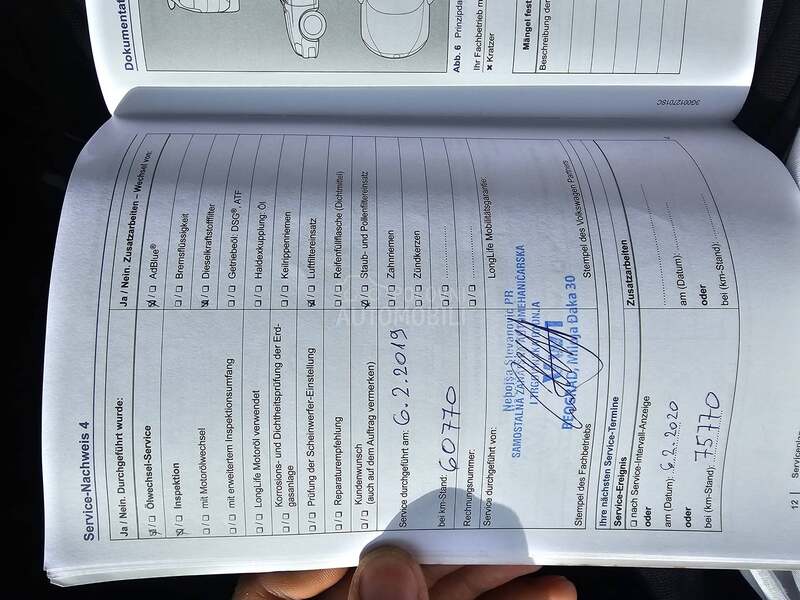 Dokumentat
Abb. 6 Prinzipda
Ihr Fachbetrieb m
✖ Kratzer
Mängel fest
Beschreibung der
3G0012701SC
Service-Nachweis 4
Ja / Nein. Durchgeführt wurde:
Ölwechsel-Service
Inspektion
mit Motorölwechsel
mit erweitertem Inspektionsumfang
LongLife Motoröl verwendet
Korrosions- und Dichtheitsprüfung der Erd-
gasanlage
Prüfung der Scheinwerfer-Einstellung
Reparaturempfehlung
Kundenwunsch
(auch auf dem Auftrag vermerken)
Service durchgeführt am: 6.2.2019
bei km-Stand: 60770
Rechnungsnummer:
Service durchgeführt von:
Ja / Nein. Zusatzarbeiten – Wechsel von:
AdBlue®
Bremsflüssigkeit
Dieselkraftstofffilter
Getriebeöl, DSG®, ATF
Haldexkupplung: Öl
Keilrippenriemen
Luftfiltereinsatz
Reifenfüllflasche (Dichtmittel)
Staub- und Pollenfiltereinsatz
Zahnriemen
Zündkerzen
LongLife Mobilitätsgarantie:
Nebojša Stevanović PR
SAMOSTALNA ZANATSKA AUTOMEHANIČARSKA
BEOGRAD, Mitra Đaka 30
Stempel des Fachbetriebs
Stempel des Volkswagen Partners
Ihre nächsten Service-Termine
Service-Ereignis
nach Service-Intervall-Anzeige
oder
am (Datum): 6.2.2020
oder
bei (km-Stand): 75770
Zusatzarbeiten
am (Datum):
oder
bei (km-Stand):
12 | Serviceheft
AUTOMOBILI